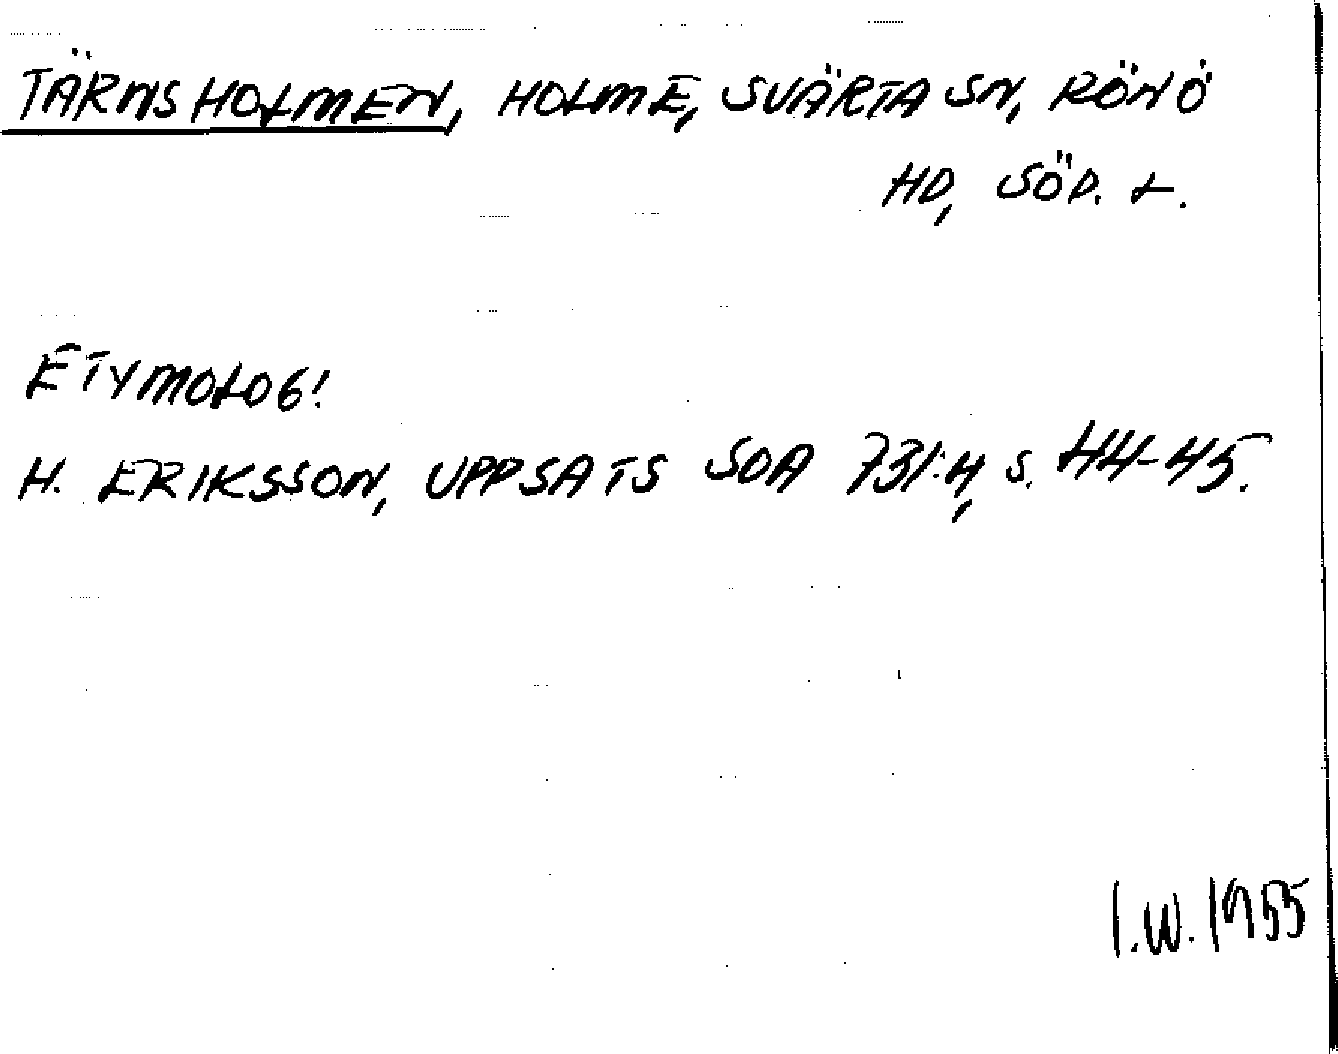 TÄRNSHOLMEN, HOLME, SVÄRTA SN, RÖNÖ
HD, SÖD. L.
ETYMOLOG!
H. ERIKSSON, UPPSATS SOA 731:4, S. 44-45.
I.W. 1955